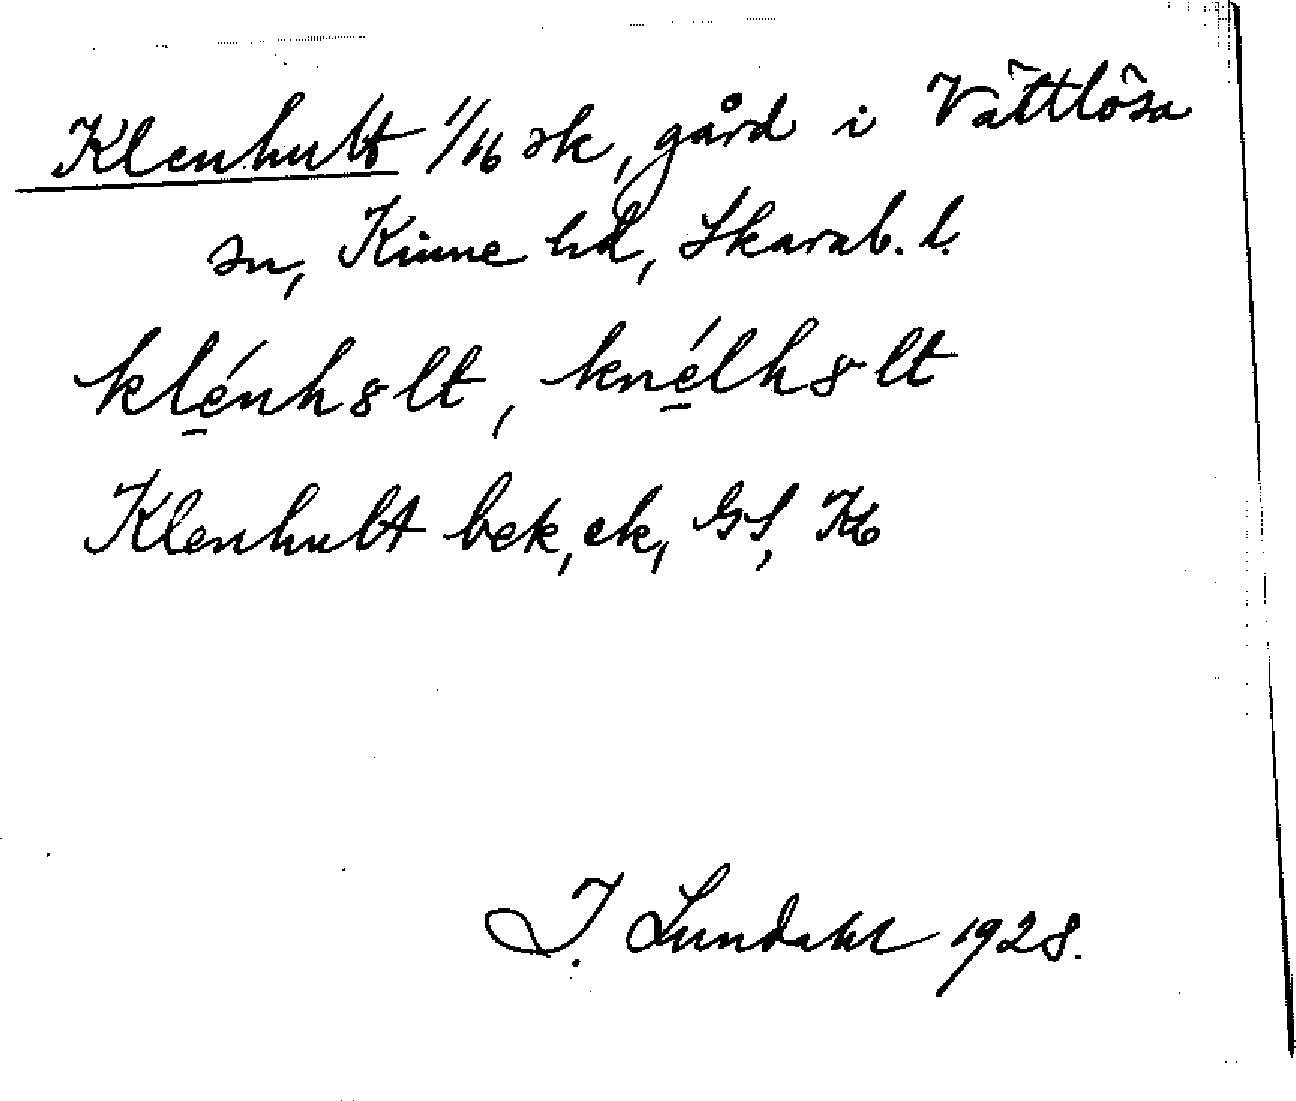 Klenhult 1/16 sk, gård i Vättlösa
sn, Kinne hd, Skarab. l.
klé̠nh8lt, kné̠lh8lt
Klenhult bek, ek, GS, Kb
I. Lundahl 1928.